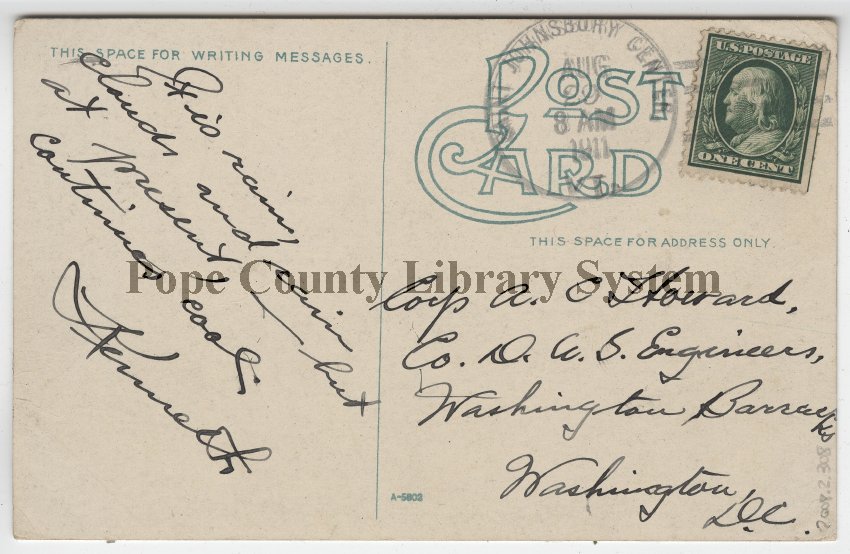 THIS SPACE FOR WRITING MESSAGES.
It is rain,
clouds and rain
at present, but
continues cool.
Kenneth
SAINT JOHNSBURY CENTER
AUG
8 AM
1911
VT.
POST
CARD
U.S. POSTAGE
ONE CENT
THIS SPACE FOR ADDRESS ONLY.
Pope County Library System
Corp A. C. Howard,
Co. D. U. S. Engineers,
Washington Barracks
Washington,
D.C.
A-5802
2008.2.308